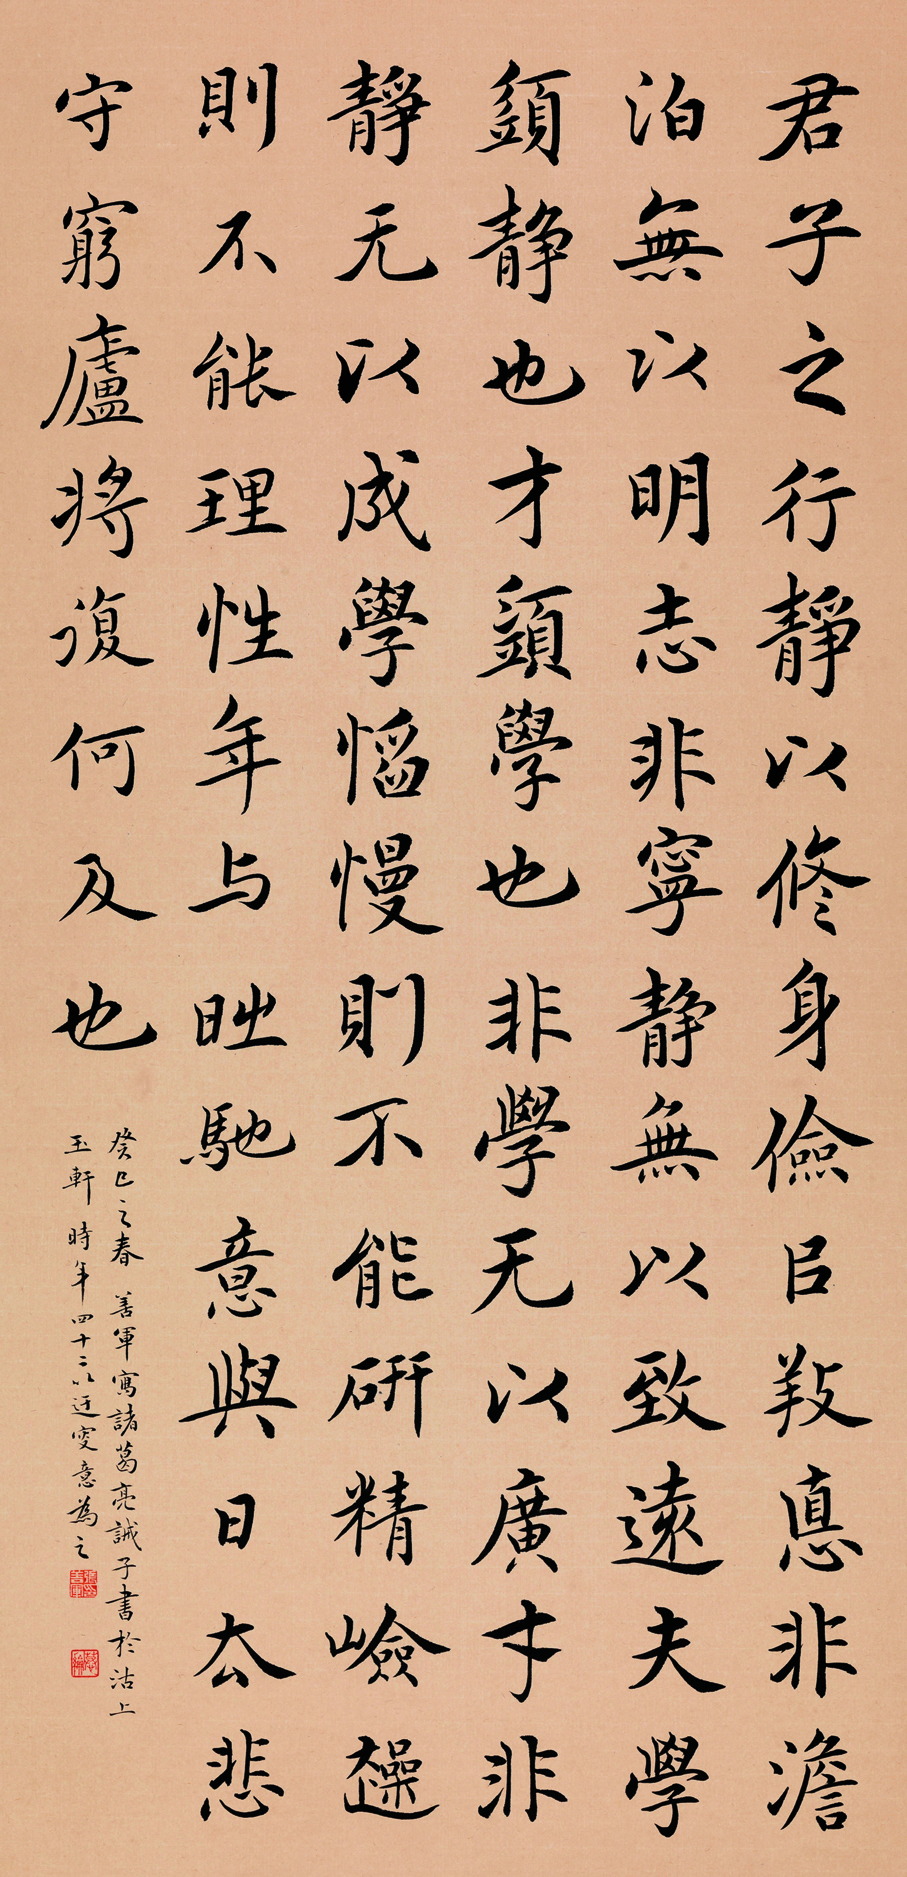 君子之行靜以修身儉㠯𢼝悳非澹
泊無以明志非寧静無以致遠夫學
須静也才須學也非學无以廣才非
靜无以成學慆慢則不能研精嶮趮
則不能理性年与時馳意與日去悲
守窮廬將復何及也
癸巳之春 善軍寫諸葛亮誡子書於沽上
玉軒 時年四十二以迂叟意為之